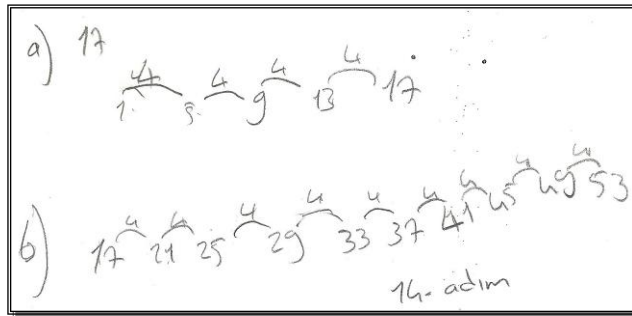 a) 17
4 4 4 4
1 5 9 13 17
4 4 4 4 4 4 4 4 4
b) 17 21 25 29 33 37 41 45 49 53
14. adım